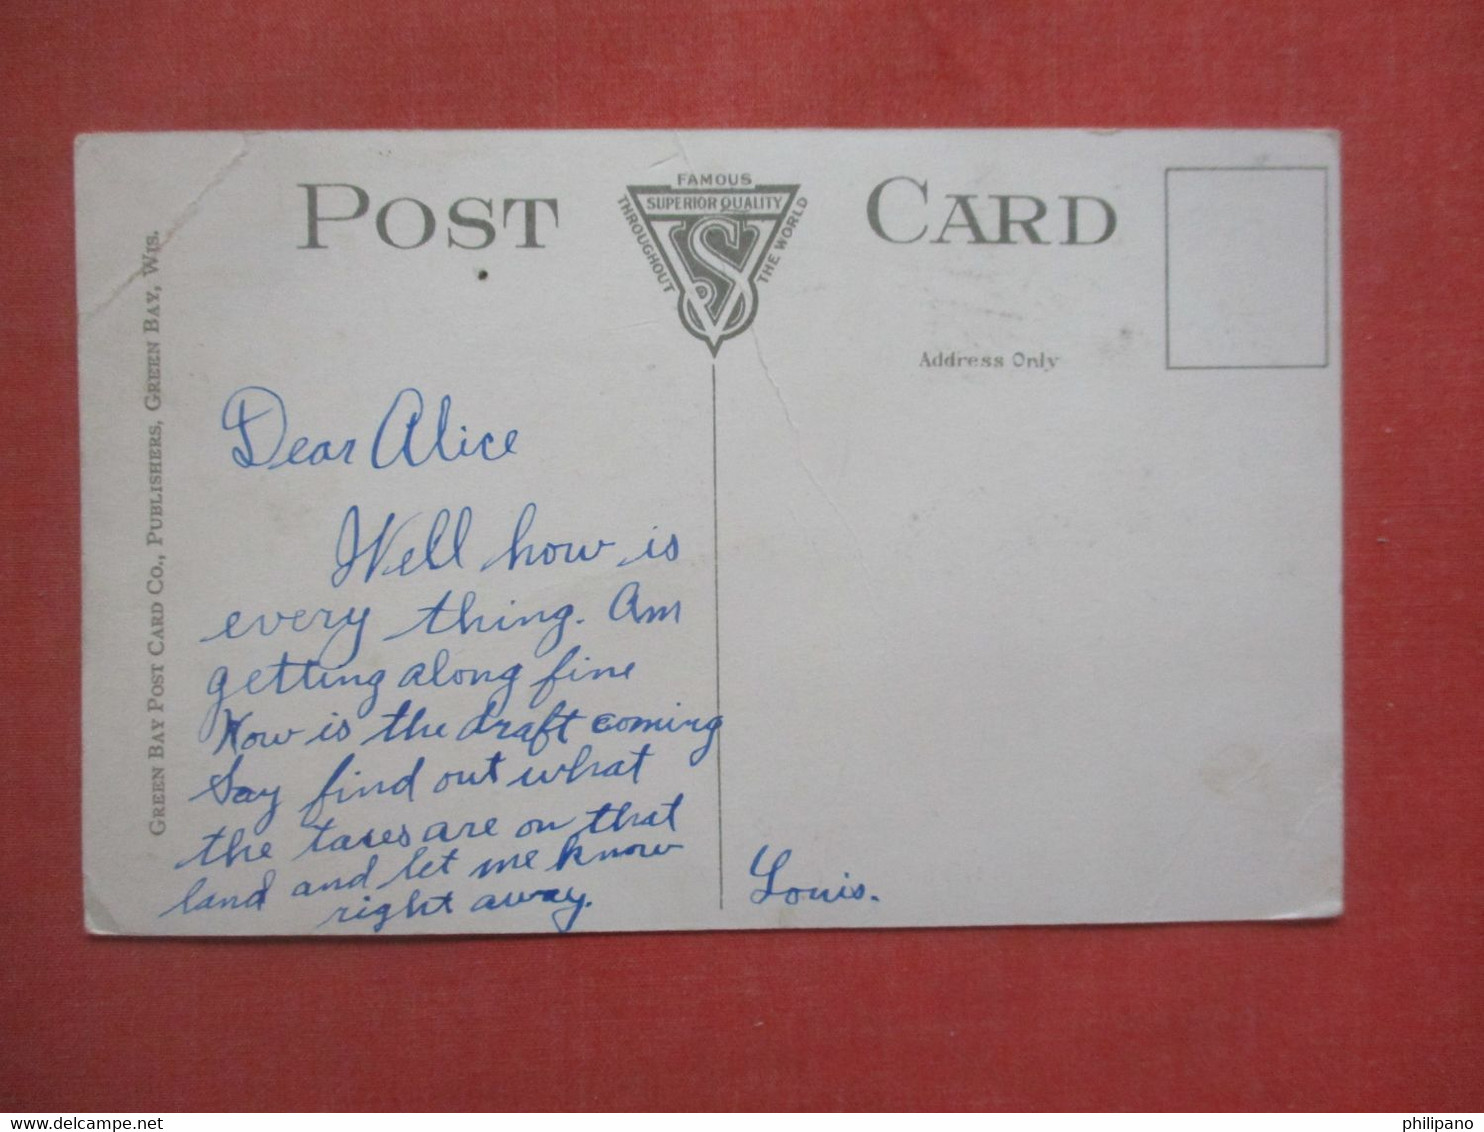 POST CARD
FAMOUS
SUPERIOR QUALITY
THROUGHOUT
THE WORLD
VS
Address Only
GREEN BAY POST CARD CO., PUBLISHERS, GREEN BAY, WIS.
Dear Alice
Well how is
every thing. Am
getting along fine
How is the draft coming
Say find out what
the taxes are on that
land and let me know
right away.
Louis.
www.delcampe.net
philipano